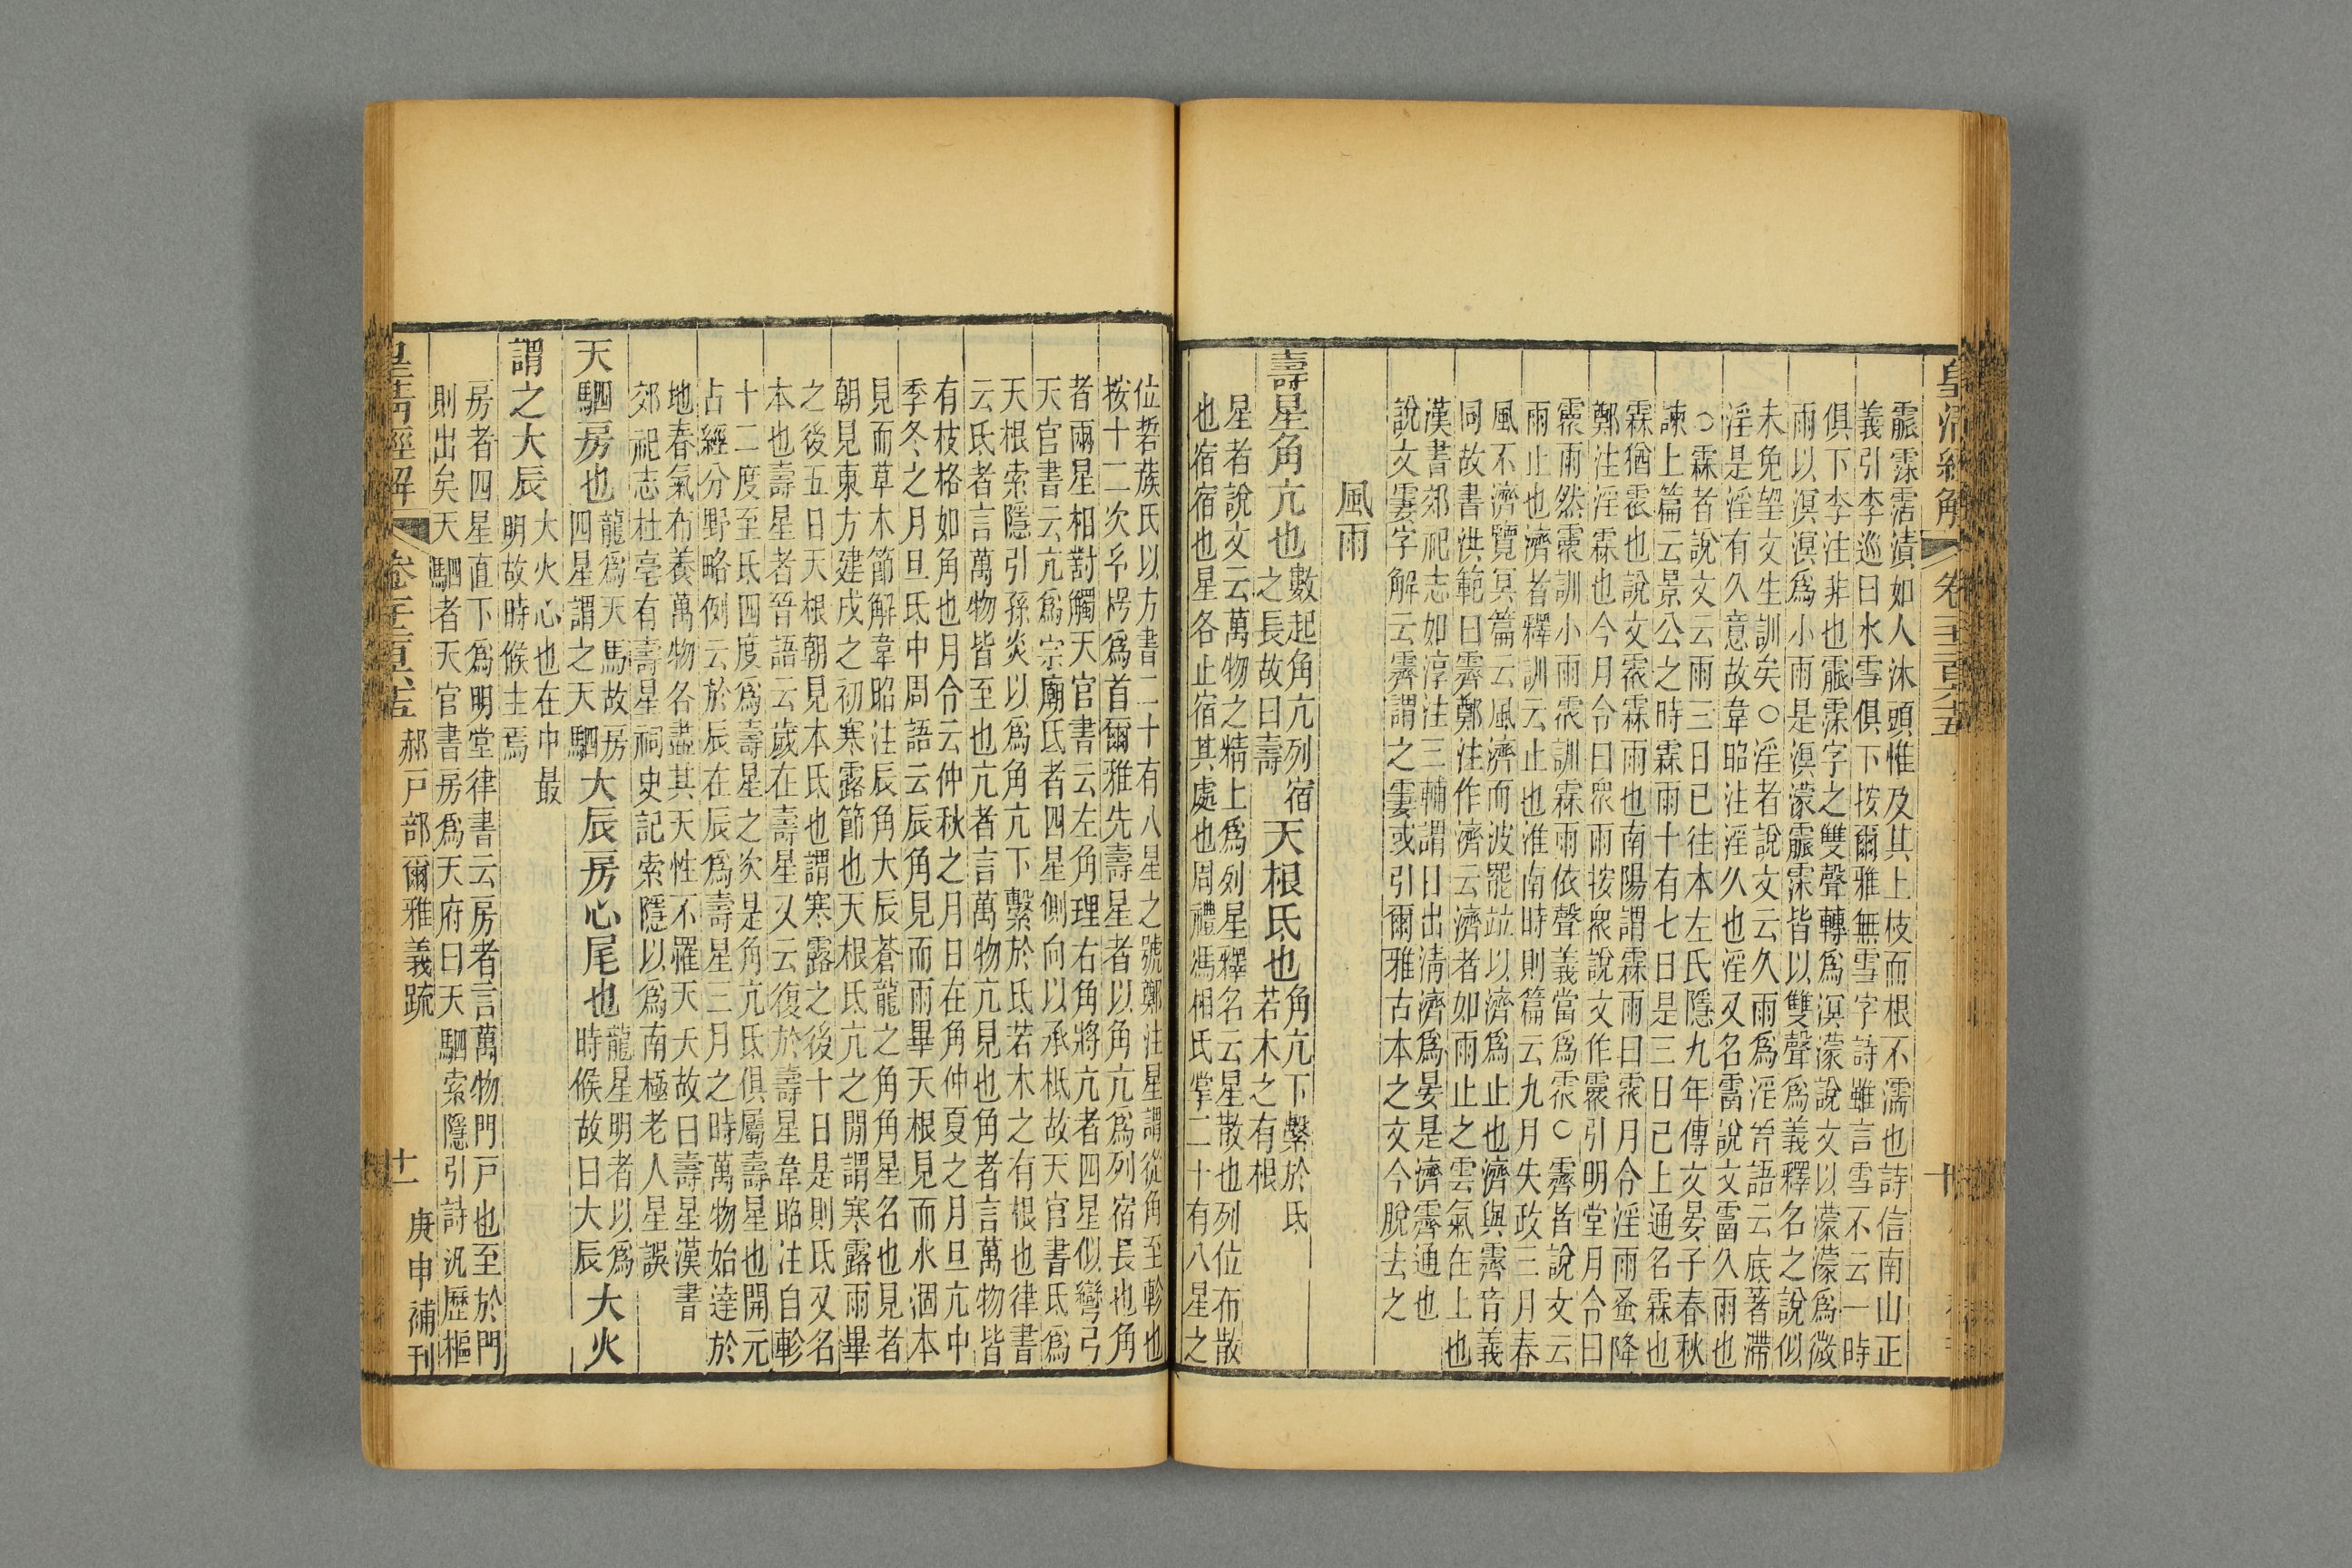 皇淸經解 卷千二百六十五 十
霢霂霑漬如人沐頭惟及其上枝而根不濡也詩信南山正
義引李巡曰水雪俱下按爾雅無雪字詩雖言雪不云一時
俱下李注非也霢霂字之雙聲轉爲溟濛說文以濛爲微
雨以溟溟爲小雨是溟濛霢霂皆以雙聲爲義釋名之說似
未免望文生訓矣〇淫者說文云久雨爲淫晉語云底著滯
淫是淫有久意故韋昭注淫久也淫又名霪說文霪久雨也
〇霖者說文云雨三日已往本左氏隱九年傳文晏子春秋
諫上篇云景公之時霖雨十有七日是三日已上通名霖也
霖猶霃也說文霃霖雨也南陽謂霖雨曰霃月令淫雨蚤降
鄭注淫霖也今月令曰衆雨按衆說文作霥引明堂月令曰
霥雨然霥訓小雨霃訓霖雨依聲義當爲霃〇霽者說文云
雨止也濟者釋訓云止也淮南時則篇云九月失政三月春
風不濟覽冥篇云風濟而波罷竝以濟爲止也濟與霽音義
同故書洪範曰霽鄭注作濟云濟者如雨止之雲氣在上也
漢書郊祀志如淳注三輔謂日出淸濟爲晏是濟霽通也
說文霋字解云霽謂之霋或引爾雅古本之文今脫去之
風雨
壽星角亢也數起角亢列宿之長故曰壽天根氐也角亢下繫於氐若木之有根
星者說文云萬物之精上爲列星釋名云星散也列位布散
也宿宿也星各止宿其處也周禮馮相氏掌二十有八星之
位硩蔟氏以方書二十有八星之號鄭注星謂從角至軫也
按十二次兮枵爲首爾雅先壽星者以角亢爲列宿長也角
者兩星相對觸天官書云左角理右角將亢者四星似彎弓
天官書云亢爲宗廟氐者四星側向以承柢故天官書氐爲
天根索隱引孫炎以爲角亢下繫於氐若木之有根也律書
云氐者言萬物皆至也亢者言萬物亢見也角者言萬物皆
有枝格如角也月令云仲秋之月日在角仲夏之月旦亢中
季冬之月旦氐中周語云辰角見而雨畢天根見而水涸本
見而草木節解韋昭注辰角大辰蒼龍之角角星名也見者
朝見東方建戌之初寒露節也天根氐亢之閒謂寒露雨畢
之後五日天根朝見本氐也謂寒露之後十日是則氐又名
本也壽星者晉語云歲在壽星又云復於壽星韋昭注自軫
十二度至氐四度爲壽星之次是角亢氐俱屬壽星也開元
占經分野略例云於辰在辰爲壽星三月之時萬物始達於
地春氣布養萬物各盡其天性不罹天夭故曰壽星漢書
郊祀志杜亳有壽星祠史記索隱以爲南極老人星誤
天駟房也龍爲天馬故房四星謂之天駟大辰房心尾也龍星明者以爲時候故曰大辰大火
謂之大辰大火心也在中最明故時候主焉
房者四星直下爲明堂律書云房者言萬物門戸也至於門
則出矣天駟者天官書房爲天府曰天駟索隱引詩汎歷樞
皇淸經解 卷千二百六十五 郝戸部爾雅義疏 十一 庚申補刊